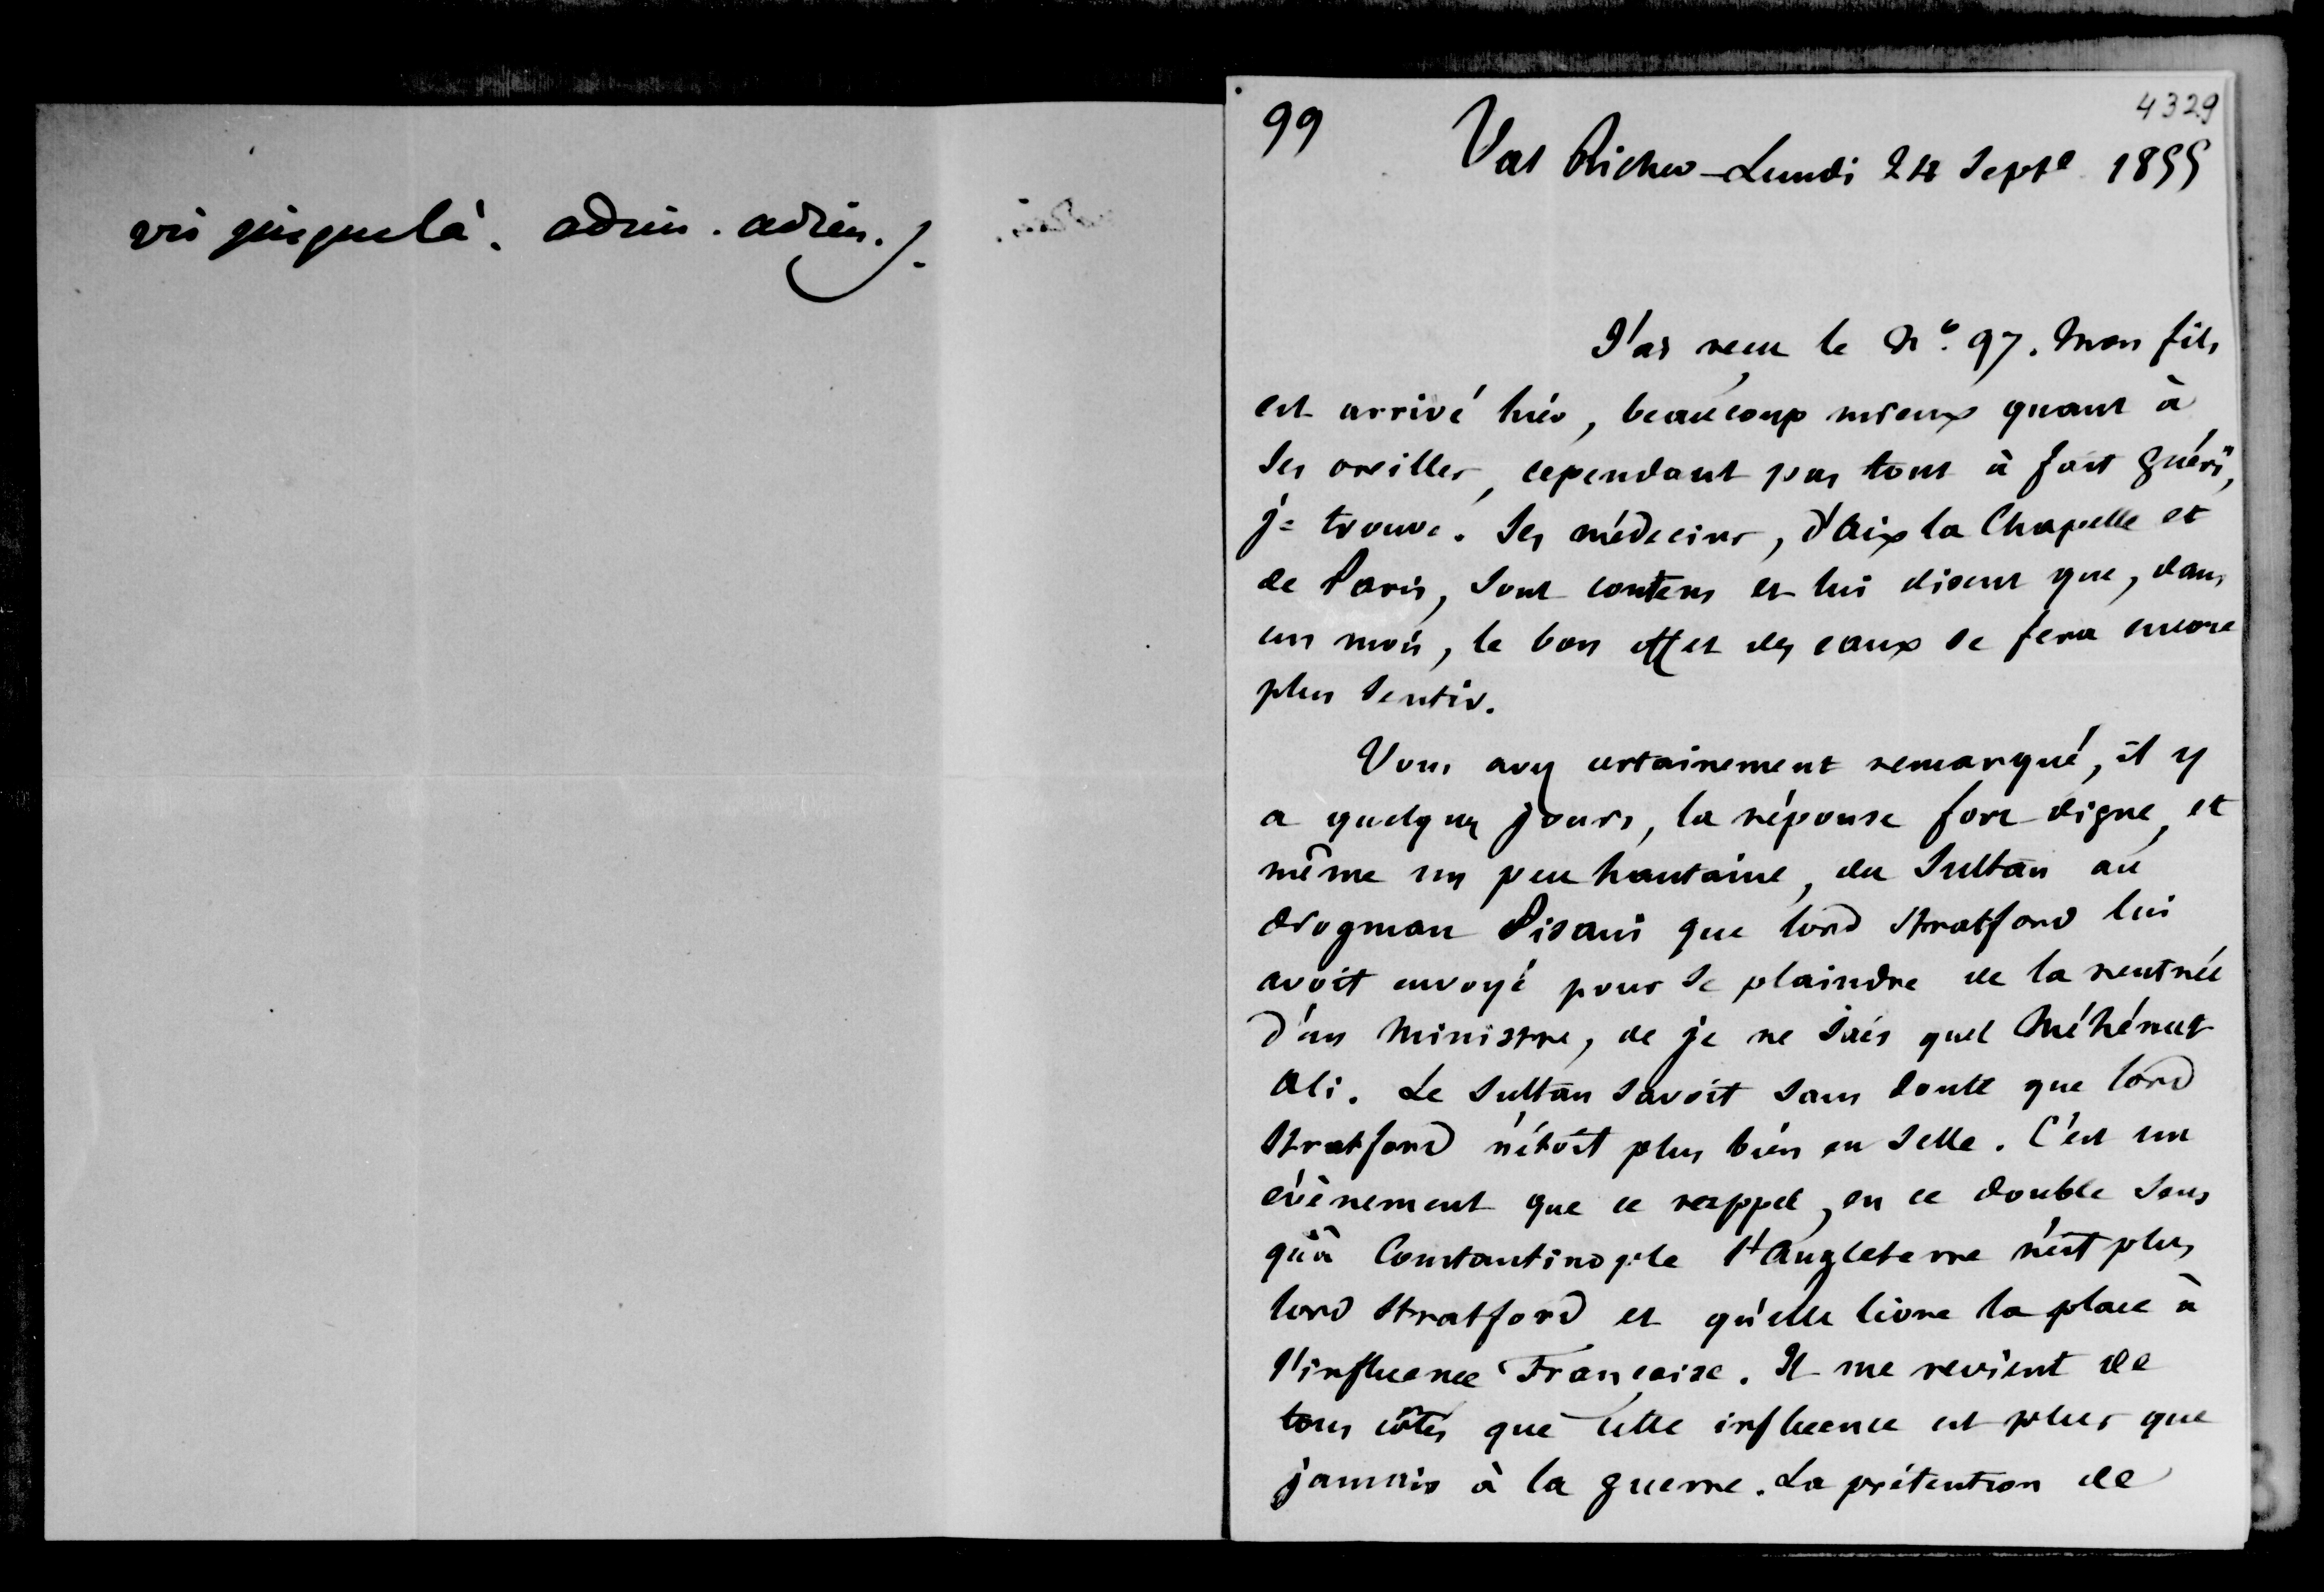 vû jusques là. adieu. adieu.
4329
99
Val Richer - Lundi 24 Sept^e 1855
J'ai reçu le N^o. 97. Mon fils
est arrivé hier, beaucoup mieux quant à
ses oreilles, cependant pas tout à fait guéri,
je trouve. Ses médecins, d'Aix la Chapelle et
de Paris, sont contens et lui disent que, dans
un mois, le bon effet des eaux se fera encore
plus sentir.
Vous avez certainement remarqué, il y
a quelques jours, la réponse fort digne, et
même un peu hautaine, du Sultan au
drogman Pisani que lord Stratford lui
avoit envoyé pour se plaindre de la rentrée
d'un Ministre, de je ne sais quel Méhémet
Ali. Le Sultan savoit sans doute que lord
Stratford n'étoit plus bien en selle. C'est un
événement que ce rappel, en ce double sens
qu'à Constantinople l'Angleterre n'est plus
lord Stratford et qu'elle livre la place à
l'influence Française. Il me revient de
tous côtés que cette influence est plus que
jamais à la guerre. La prétention de